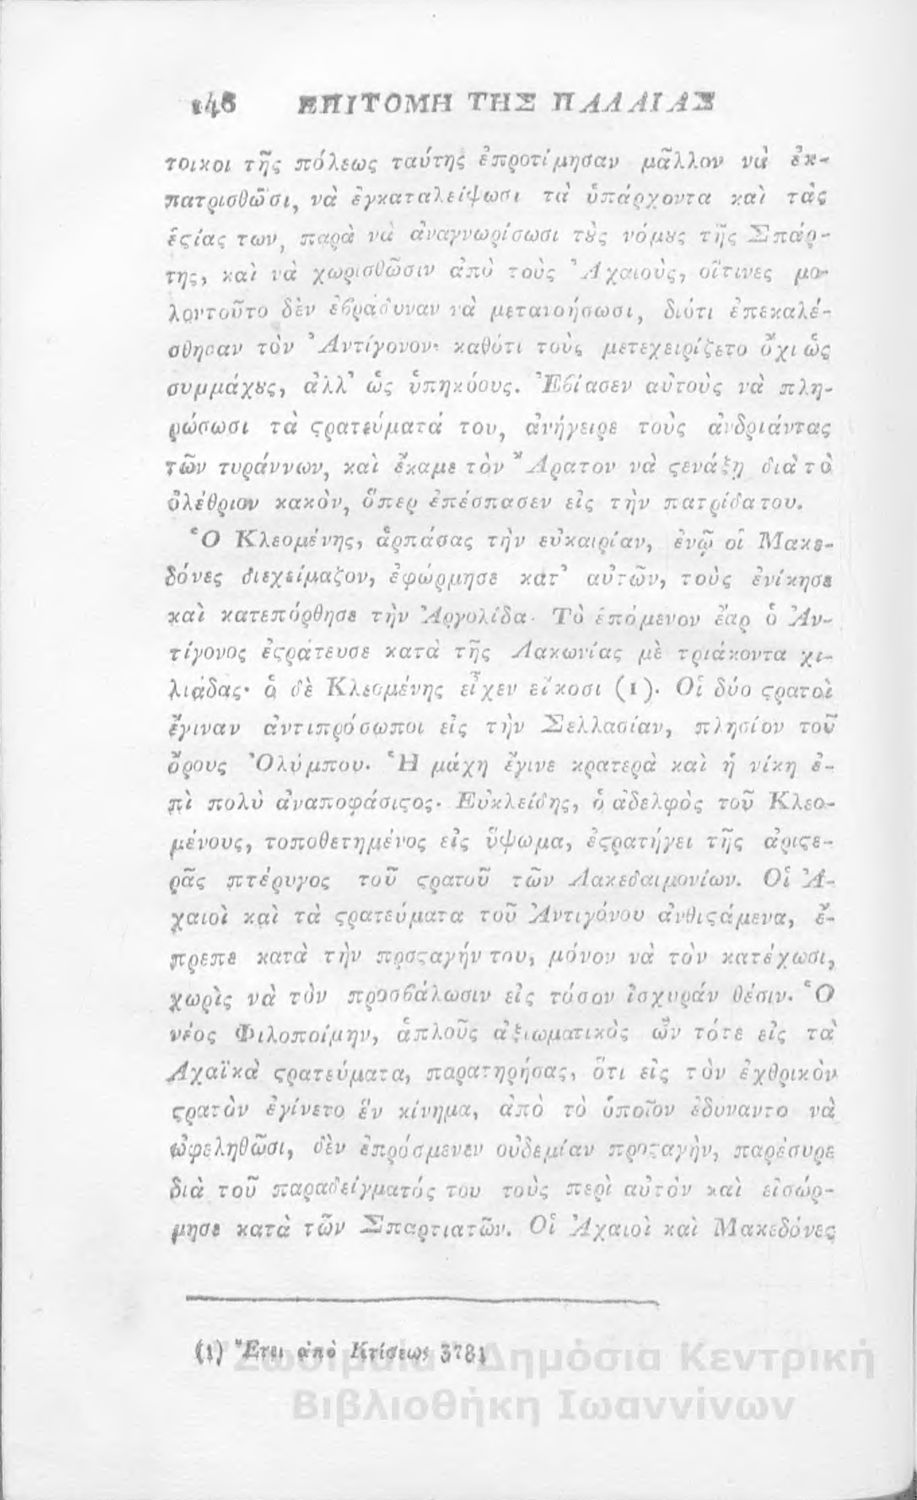 146 ΕΠΙΤΟΜΗ ΤΗΣ ΠΑΛΑΙΑΣ
τοικοι τῆς πόλεως ταύτης ἐπροτίμησαν μᾶλλον νὰ ἐκ-
πατρισθῶσι, νὰ ἐγκαταλείψωσι τὰ ὑπάρχοντα καὶ τὰς
ἑϛίας των, παρὰ νὰ ἀναγνωρίσωσι τȣ̀ς νόμȣς τῆς Σπάρ-
της, καὶ νὰ χωρισθῶσιν ἀπὸ τοὺς Ἀχαιοὺς, οἵτινες μο-
λοντοῦτο δὲν ἐβράδυναν νὰ μετανοήσωσι, διότι ἐπεκαλέ-
σθησαν τὸν Ἀντίγονον· καθότι τοὺς μετεχειρίζετο ὄχι ὡς
συμμάχȣς, ἀλλ' ὡς ὑπηκόους. Ἐβίασεν αὐτοὺς νὰ πλη-
ρώσωσι τὰ ϛρατεύματά του, ἀνήγειρε τοὺς ἀνδριάντας
τῶν τυράννων, καὶ ἔκαμε τὸν Ἄρατον νὰ ϛενάξῃ διὰ τὸ
ὀλέθριον κακὸν, ὅπερ ἐπέσπασεν εἰς τὴν πατρίδα του.
Ὁ Κλεομένης, ἁρπάσας τὴν εὐκαιρίαν, ἐνῷ οἱ Μακε-
δόνες διεχείμαζον, ἐφώρμησε κατ' αὐτῶν, τοὺς ἐνίκησε
καὶ κατεπόρθησε τὴν Ἀργολίδα· Τὸ ἑπόμενον ἔαρ ὁ Ἀν-
τίγονος ἐϛράτευσε κατὰ τῆς Λακωνίας μὲ τριάκοντα χι-
λιάδας· ὁ δὲ Κλεομένης εἶχεν εἴκοσι (1). Οἱ δύο ϛρατοὶ
ἔγιναν ἀντιπρόσωποι εἰς τὴν Σελλασίαν, πλησίον τοῦ
ὄρους Ὀλύμπου. Ἡ μάχη ἔγινε κρατερὰ καὶ ἡ νίκη ἐ-
πὶ πολὺ ἀναποφάσιϛος· Εὐκλείδης, ὁ ἀδελφὸς τοῦ Κλεο-
μένους, τοποθετημένος εἰς ὕψωμα, ἐϛρατήγει τῆς ἀριϛε-
ρᾶς πτέρυγος τοῦ ϛρατοῦ τῶν Λακεδαιμονίων. Οἱ Ἀ-
χαιοὶ καὶ τὰ ϛρατεύματα τοῦ Ἀντιγόνου ἀνθιϛάμενα, ἔ-
πρεπε κατὰ τὴν προϛαγήν του, μόνον νὰ τὸν κατέχωσι,
χωρὶς νὰ τὸν προσβάλωσιν εἰς τόσον ἰσχυρὰν θέσιν. Ὁ
νέος Φιλοποίμην, ἁπλοῦς ἀξιωματικὸς ὢν τότε εἰς τὰ
Ἀχαϊκὰ ϛρατεύματα, παρατηρήσας, ὅτι εἰς τὸν ἐχθρικὸν
ϛρατὸν ἐγίνετο ἓν κίνημα, ἀπὸ τὸ ὁποῖον ἐδύναντο νὰ
ὠφεληθῶσι, δὲν ἐπρόσμενεν οὐδεμίαν προϛαγὴν, παρέσυρε
διὰ τοῦ παραδείγματός του τοὺς περὶ αὐτὸν καὶ εἰσώρ-
μησε κατὰ τῶν Σπαρτιατῶν. Οἱ Ἀχαιοὶ καὶ Μακεδόνες
(1) Ἔτει ἀπὸ Κτίσεως 3781
Ζωσιμαία Δημόσια Κεντρική
Βιβλιοθήκη Ιωαννίνων